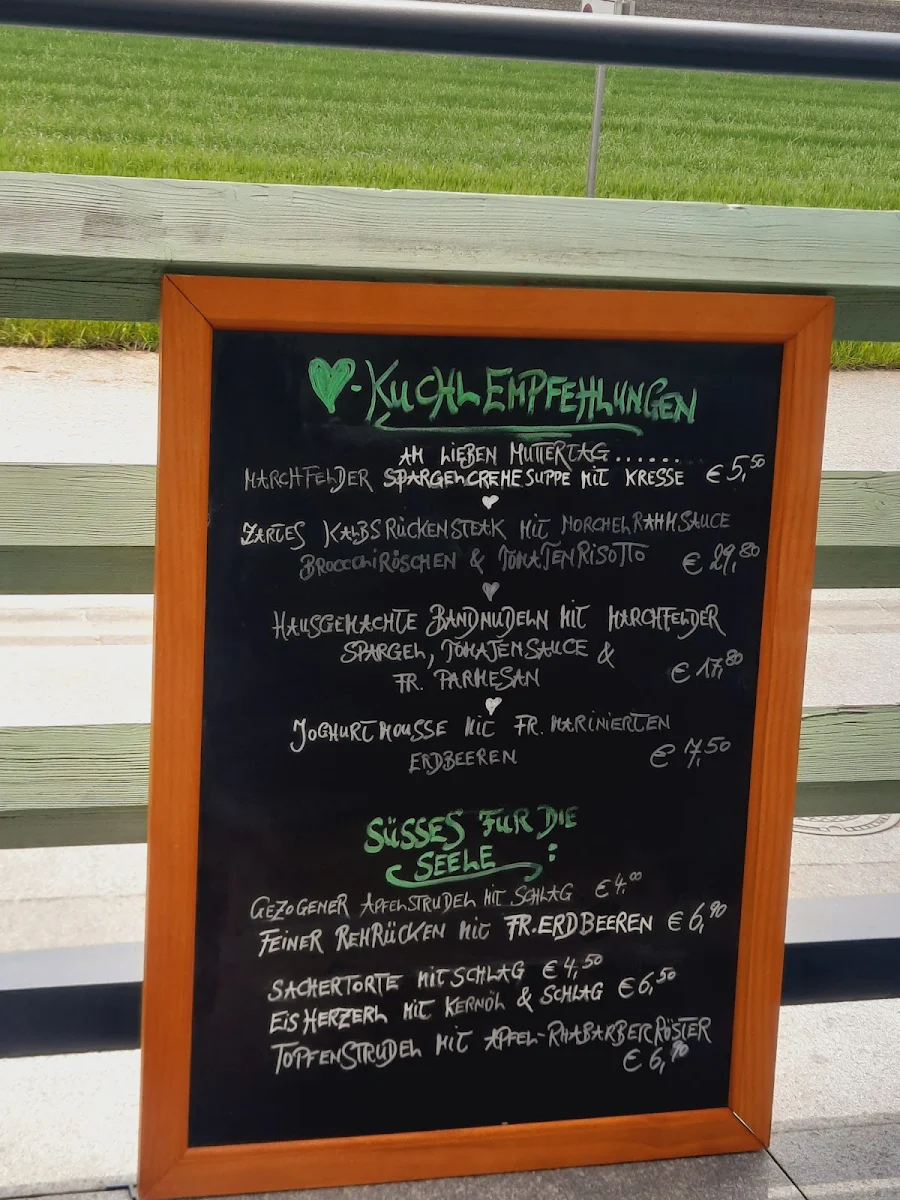 ♥-KUCHL EMPFEHLUNGEN
AM LIEBEN MUTTERTAG.......
MARCHFELDER SPARGELCREMESUPPE MIT KRESSE € 5,50
ZARTES KALBSRÜCKENSTEAK MIT MORCHELRAHMSAUCE
BROCCOLIRÖSCHEN & TOMATENRISOTTO € 29,80
HAUSGEMACHTE BANDNUDELN MIT MARCHFELDER
SPARGEL, TOMATENSAUCE &
FR. PARMESAN € 17,80
JOGHURTMOUSSE MIT FR. MARINIERTEN
ERDBEEREN € 7,50
SÜSSES FUR DIE
SEELE :
GEZOGENER APFELSTRUDEL MIT SCHLAG € 4.00
FEINER REHRÜCKEN MIT FR. ERDBEEREN € 6,90
SACHERTORTE MIT SCHLAG € 4,50
EIS HERZERL MIT KERNÖL & SCHLAG € 6,50
TOPFENSTRUDEL MIT APFEL-RHABARBERRÖSTER
€ 6,90